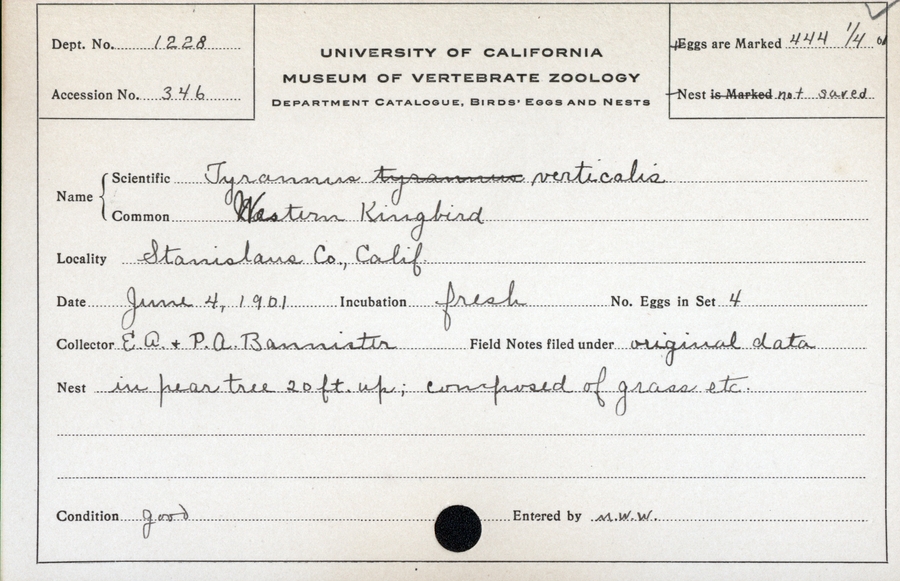 Dept. No. 1228
Accession No. 346
UNIVERSITY OF CALIFORNIA
MUSEUM OF VERTEBRATE ZOOLOGY
DEPARTMENT CATALOGUE, BIRDS' EGGS AND NESTS
Eggs are Marked 444 1/4
Nest is Marked not saved
Name
Scientific Tyrannus tyrannus verticalis
Common Western Kingbird
Locality Stanislaus Co., Calif.
Date June 4, 1901 Incubation fresh No. Eggs in Set 4
Collector E.A. + P.A. Bannister Field Notes filed under original data
Nest in pear tree 20 ft. up; composed of grass etc.
Condition good Entered by M.W.W.